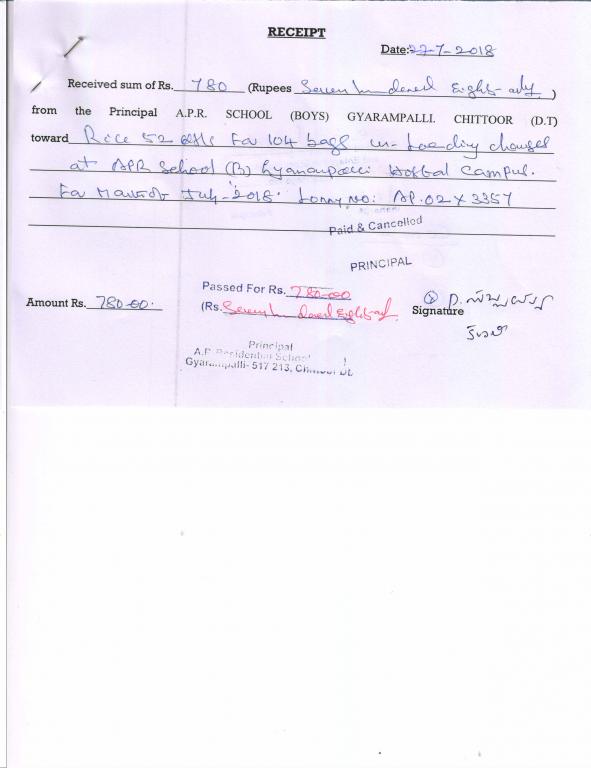 RECEIPT
Date: 22-7-2018
Received sum of Rs. 780 (Rupees Seven Hundered Eighty only.)
from the Principal A.P.R. SCHOOL (BOYS) GYARAMPALLI. CHITTOOR (D.T)
toward Rice 52 For 104 bags un-Loading charges
at APR School (B) Gyarampalli Hostal Campus.
For Month July-2018. Lorry NO: AP.02 X 3357
Paid & Cancelled
PRINCIPAL
Passed For Rs. 780-00
Amount Rs. 780-00.
(Rs. Seven Hundered Eighty only.
Signature
Principal
A.P. Residential School
Gyarampalli- 517 213, Chittoor Dt.